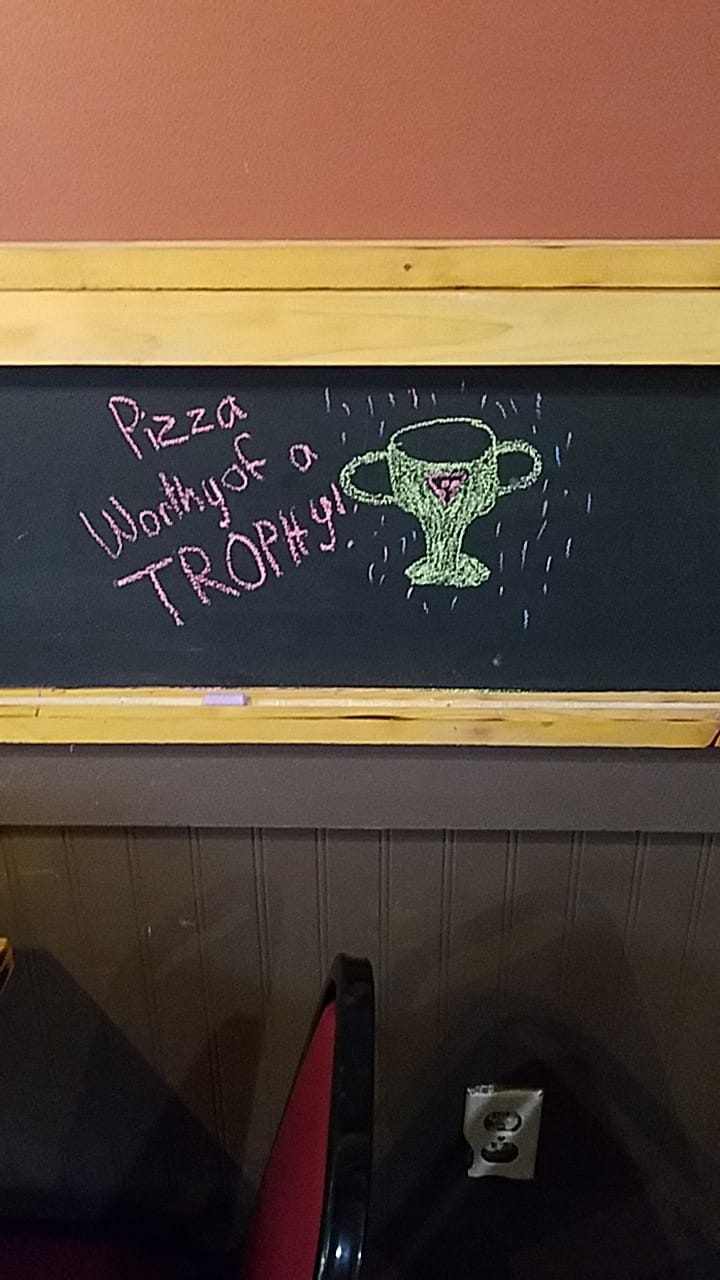 Pizza
Worthy of a
TROPHY!